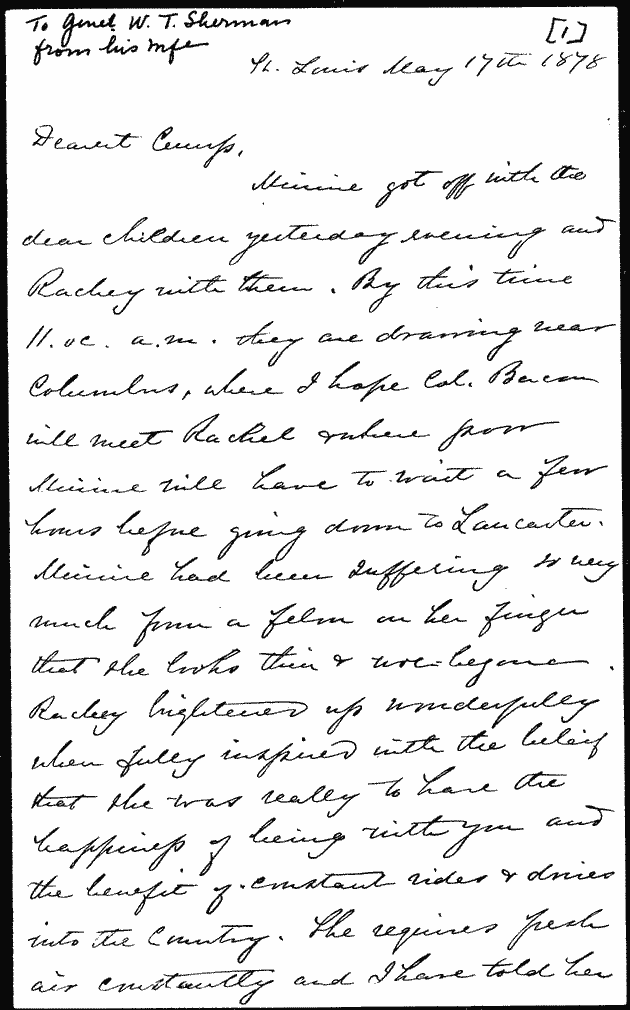 To Genel. W. T. Sherman
from his wife
[1]
St. Louis May 17th 1878
Dearest Cump,
Minnie got off with the
dear children yesterday evening and
Rachey with them. By this time
11. oc. a.m. they are drawing near
Columbus, where I hope Col. Bacon
will meet Rachel & where poor
Minnie will have to wait a few
hours before going down to Lancaster.
Minnie had been suffering so very
much from a felon on her finger
that she looks thin & woe-begone.
Rachey brightened up wonderfully
when fully inspired with the belief
that she was really to have the
happiness of being with you and
the benefit of constant rides & drives
into the Country. She requires fresh
air constantly and I have told her